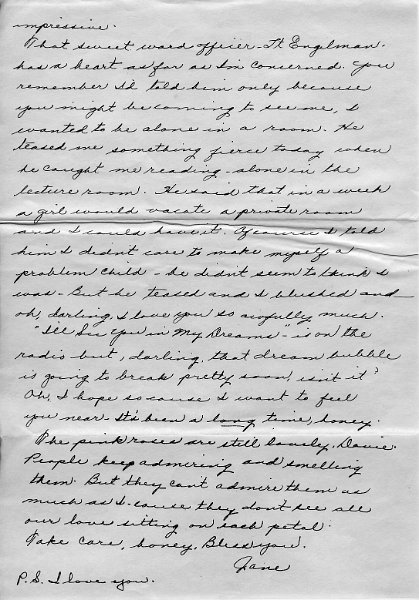 mpressive.
That sweet ward officer - Lt Englman.
has a heart as far as I'm concerned. You
remember I'd told him only because
you might be coming to see me, I
wanted to be alone in a room. He
teased me something fierce today when
he caught me reading - alone in the
lecture room. He said that in a week
a girl would vacate a private room
and I could have it. Of course I told
him I didn't care to make myself a
problem child - he didn't seem to think I
was. But he teased and I blushed and
oh, darling, I love you so awfully much.
"I'll See You in My Dreams" - is on the
radio but, darling, that dream bubble
is going to break pretty soon, isn't it?
Oh, I hope so cause I want to feel
you near. It's been a long time, honey.
The pink roses are still lovely, Davie.
People keep admiring and smelling
them. But they can't admire them as
much as I - cause they don't see all
our love sitting on each petal.
Take care, honey. Bless you.
Jane
P.S. I love you.